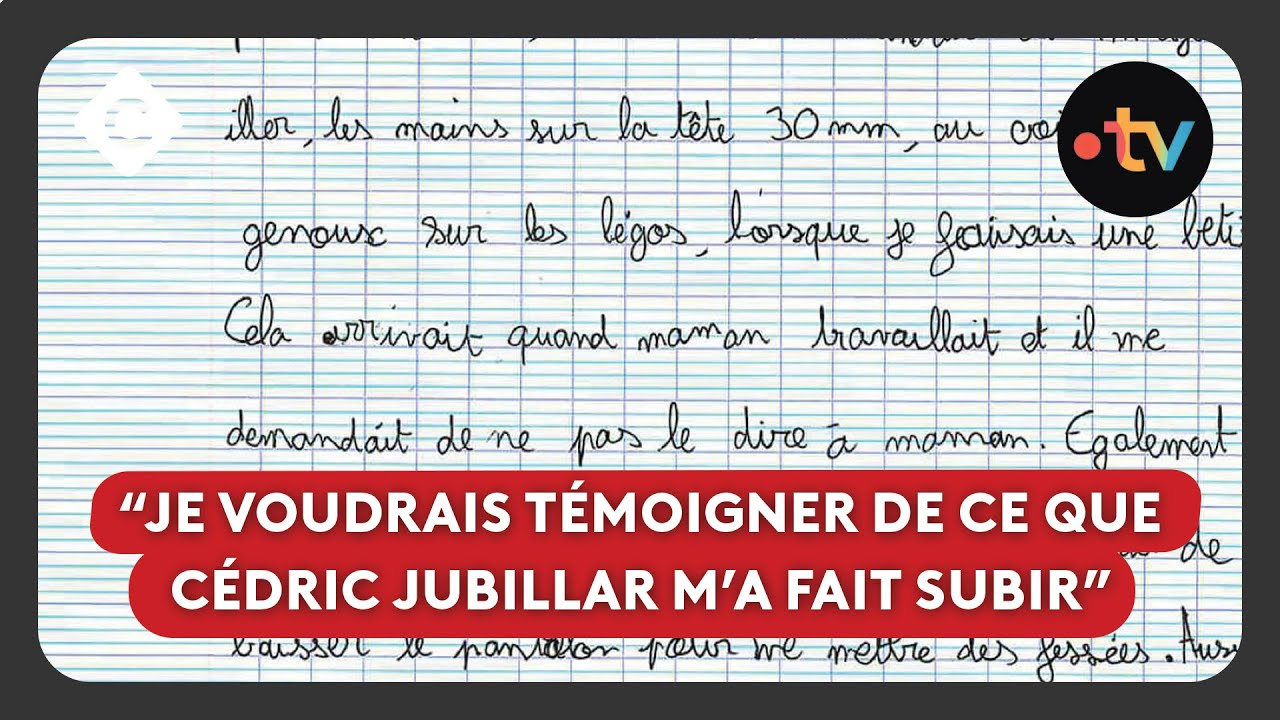 iller, les mains sur la tête 30 mm, au coi
.tv
genoux sur les légos, lorsque je faisais une beti
Cela arrivait quand maman travaillait et il me
demandait de ne pas le dire à maman. Egalement
“JE VOUDRAIS TÉMOIGNER DE CE QUE
de
CÉDRIC JUBILLAR M’A FAIT SUBIR”
baisser le pantalon pour me mettre des fessées. Auss